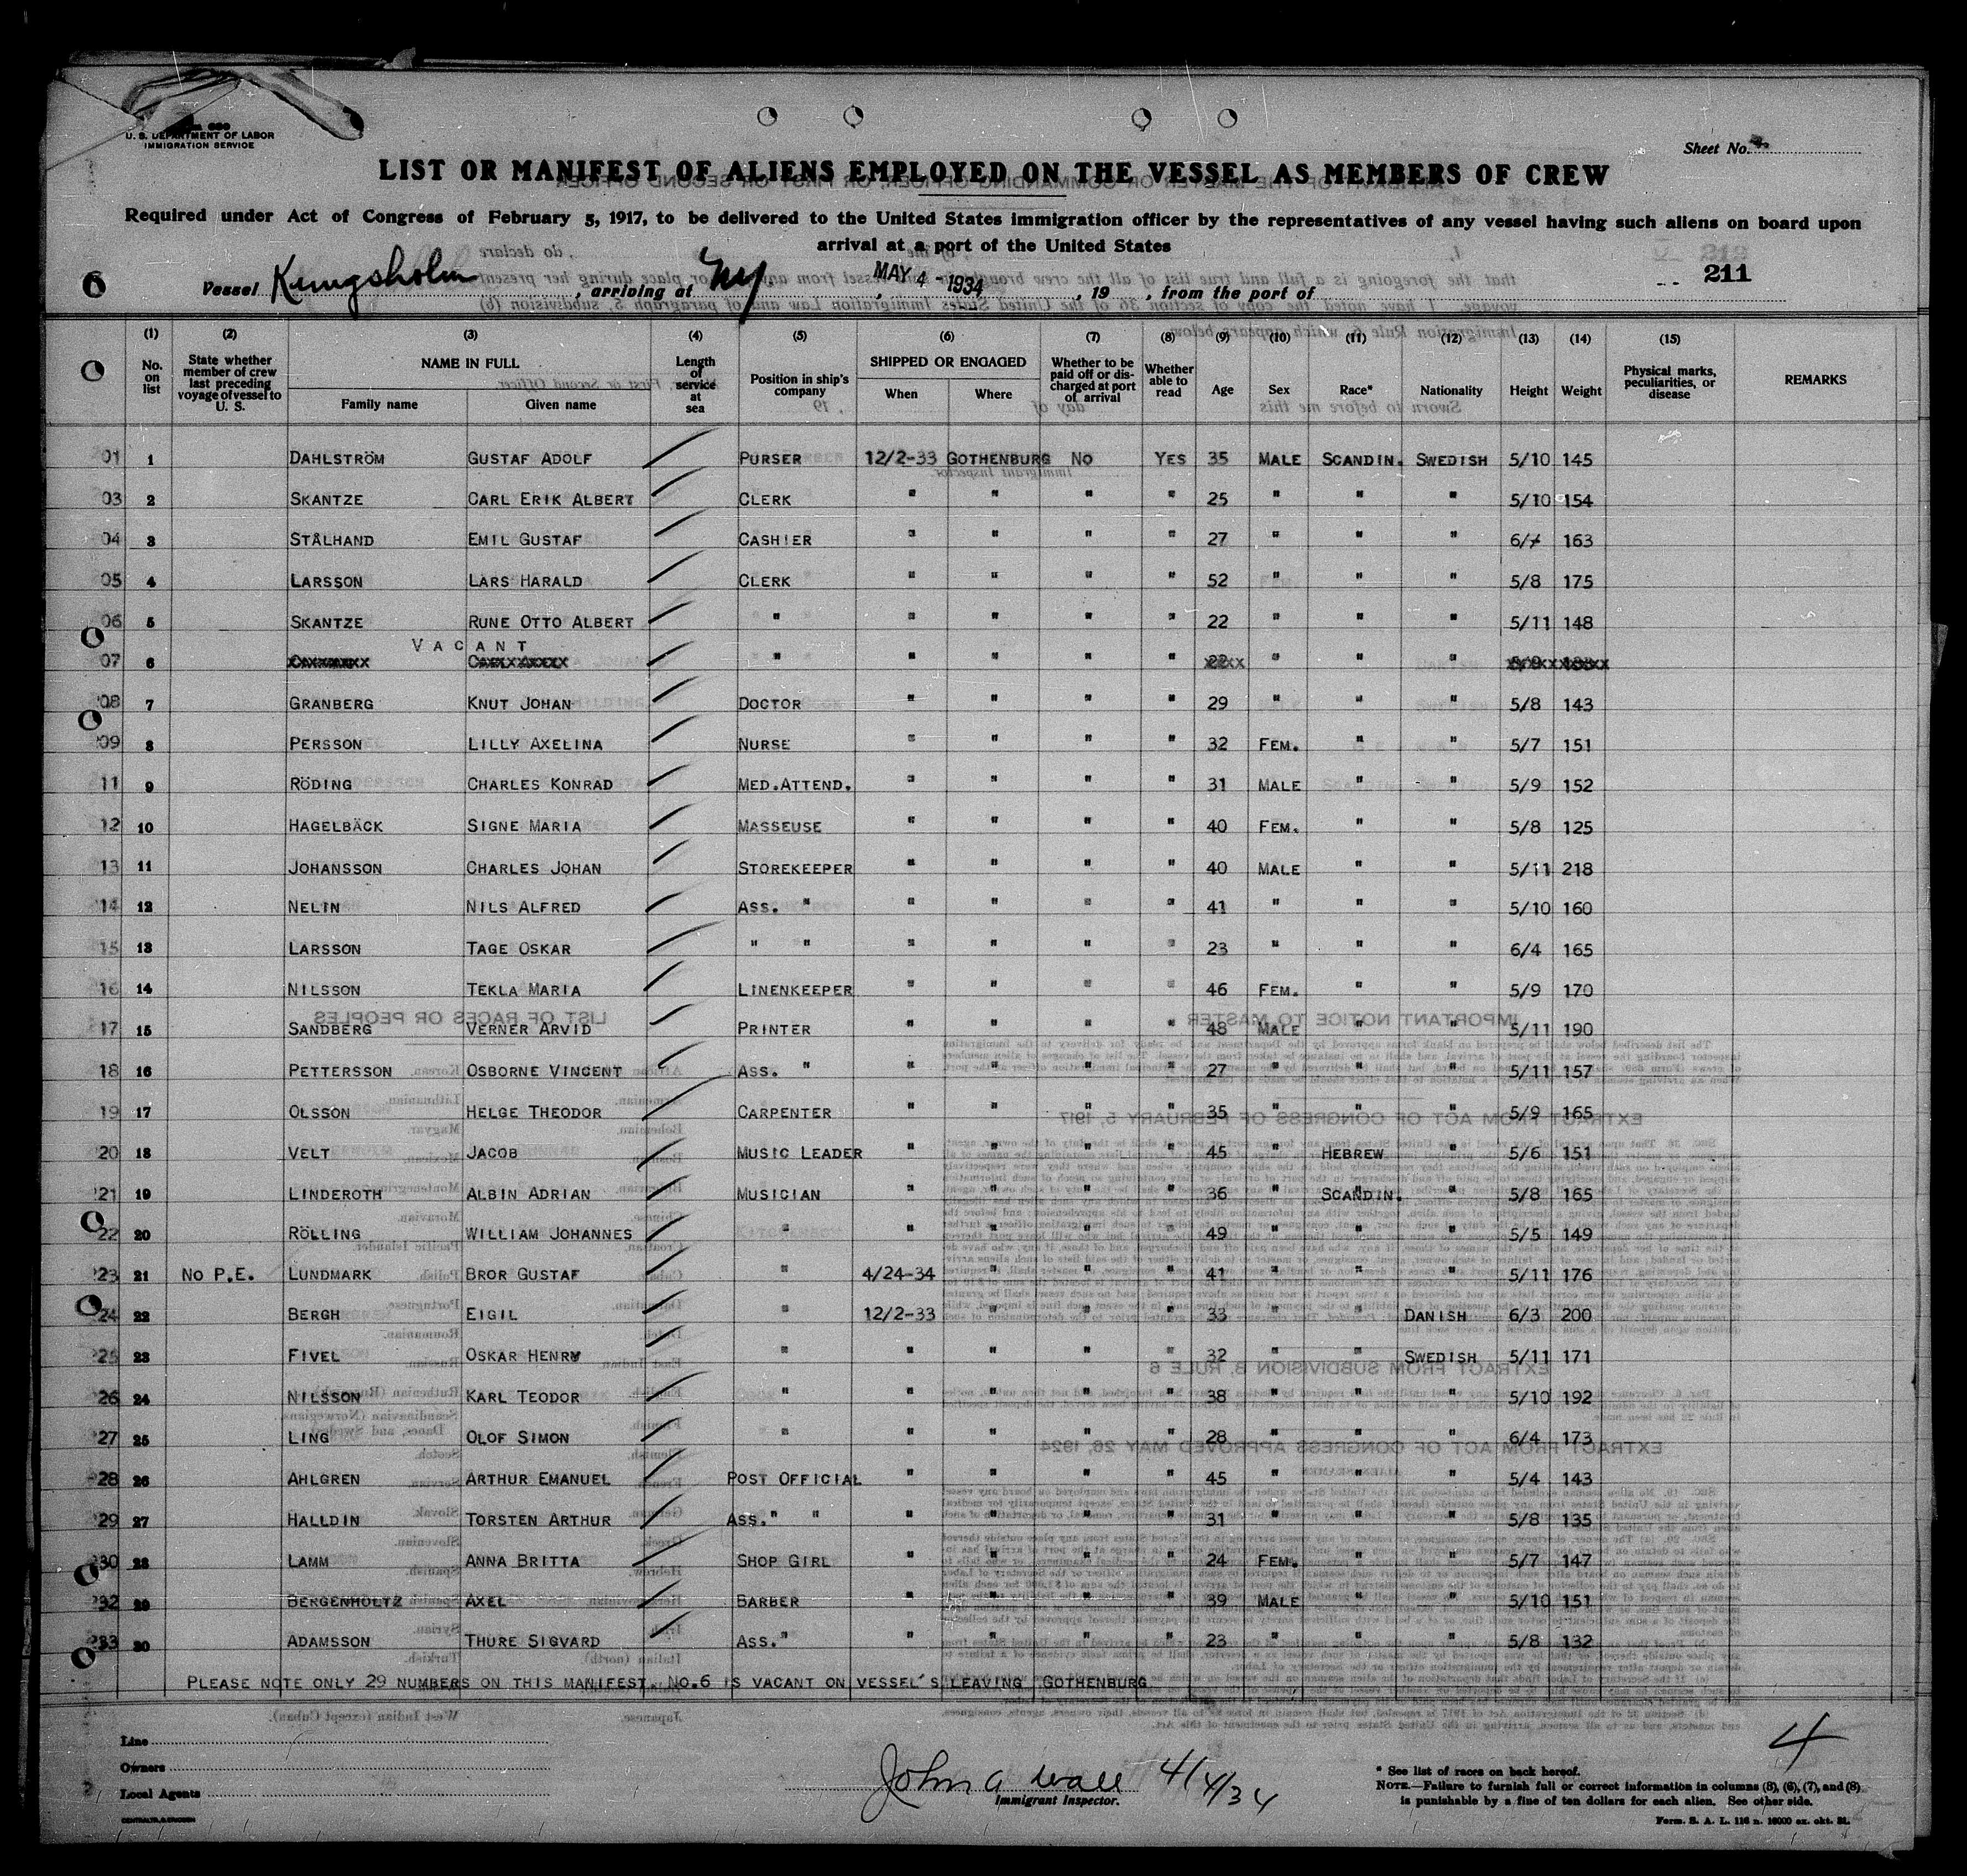 U. S. DEPARTMENT OF LABOR
IMMIGRATION SERVICE
Sheet No.
LIST OR MANIFEST OF ALIENS EMPLOYED ON THE VESSEL AS MEMBERS OF CREW
Required under Act of Congress of February 5, 1917, to be delivered to the United States immigration officer by the representatives of any vessel having such aliens on board upon
arrival at a port of the United States
6 Vessel Kungsholm, arriving at N.Y. MAY 4 - 1934, 19 , from the port of 211
(1) (2) (3) (4) (5) (6) (7) (8) (9) (10) (11) (12) (13) (14) (15)
No. on list State whether member of crew last preceding voyage of vessel to U. S. NAME IN FULL Family name Given name Length of service at sea Position in ship's company SHIPPED OR ENGAGED When Where Whether to be paid off or discharged at port of arrival Whether able to read Age Sex Race* Nationality Height Weight Physical marks, peculiarities, or disease REMARKS
01 1 DAHLSTRÖM GUSTAF ADOLF PURSER 12/2-33 GOTHENBURG NO YES 35 MALE SCANDIN. SWEDISH 5/10 145
03 2 SKANTZE CARL ERIK ALBERT CLERK " " " " 25 " " " 5/10 154
04 3 STÅLHAND EMIL GUSTAF CASHIER " " " " 27 " " " 6/ 163
05 4 LARSSON LARS HARALD CLERK " " " " 52 " " " 5/8 175
06 5 SKANTZE RUNE OTTO ALBERT " " " " " 22 " " " 5/11 148
VACANT
07 6 " " " " " " " "
08 7 GRANBERG KNUT JOHAN DOCTOR " " " " 29 " " " 5/8 143
09 8 PERSSON LILLY AXELINA NURSE " " " " 32 FEM. " " 5/7 151
11 9 RÖDING CHARLES KONRAD MED.ATTEND. " " " " 31 MALE " " 5/9 152
12 10 HAGELBÄCK SIGNE MARIA MASSEUSE " " " " 40 FEM. " " 5/8 125
13 11 JOHANSSON CHARLES JOHAN STOREKEEPER " " " " 40 MALE " " 5/11 218
14 12 NELIN NILS ALFRED ASS. " " " " " 41 " " " 5/10 160
15 13 LARSSON TAGE OSKAR " " " " " " 23 " " " 6/4 165
16 14 NILSSON TEKLA MARIA LINENKEEPER " " " " 46 FEM. " " 5/9 170
17 15 SANDBERG VERNER ARVID PRINTER " " " " 48 MALE " " 5/11 190
18 16 PETTERSSON OSBORNE VINCENT ASS. " " " " " 27 " " " 5/11 157
19 17 OLSSON HELGE THEODOR CARPENTER " " " " 35 " " " 5/9 165
20 18 VELT JACOB MUSIC LEADER " " " " 45 " HEBREW " 5/6 151
21 19 LINDEROTH ALBIN ADRIAN MUSICIAN " " " " 36 " SCANDIN. " 5/8 165
22 20 RÖLLING WILLIAM JOHANNES " " " " " 49 " " " 5/5 149
23 21 NO P.E. LUNDMARK BROR GUSTAF " 4/24-34 " " " 41 " " " 5/11 176
24 22 BERGH EIGIL " 12/2-33 " " " 33 " " DANISH 6/3 200
25 23 FIVEL OSKAR HENRY " " " " " 32 " " SWEDISH 5/11 171
26 24 NILSSON KARL TEODOR " " " " " 38 " " " 5/10 192
27 25 LING OLOF SIMON " " " " " 28 " " " 6/4 173
28 26 AHLGREN ARTHUR EMANUEL POST OFFICIAL " " " " 45 " " " 5/4 143
29 27 HALLDIN TORSTEN ARTHUR ASS." " " " " " 31 " " " 5/8 135
30 28 LAMM ANNA BRITTA SHOP GIRL " " " " 24 FEM. " " 5/7 147
32 29 BERGENHOLTZ AXEL BARBER " " " " 39 MALE " " 5/10 151
33 30 ADAMSSON THURE SIGVARD ASS." " " " " 23 " " " 5/8 132
PLEASE NOTE ONLY 29 NUMBERS ON THIS MANIFEST. NO.6 IS VACANT ON VESSEL'S LEAVING GOTHENBURG
Line
Owners
Local Agents
John A Wall 4/4/34
Immigrant Inspector.
4
* See list of races on back hereof.
NOTE.—Failure to furnish full or correct information in columns (3), (6), (7), and (8)
is punishable by a fine of ten dollars for each alien. See other side.
Form. S. A. L. 116 n. 16000 ex. okt. 31.